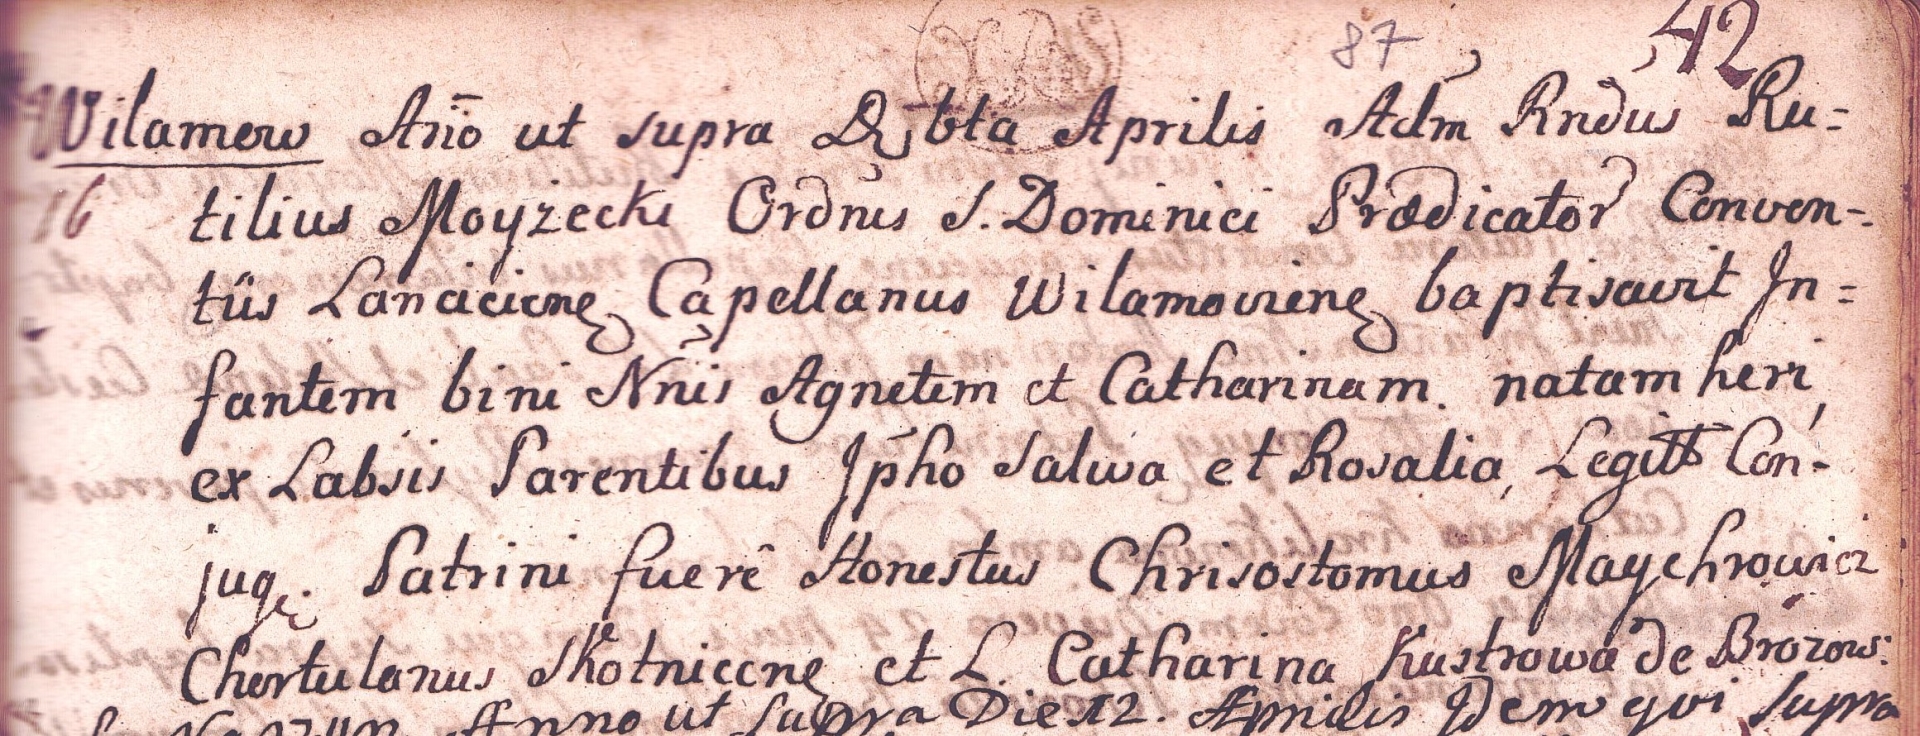 87 42
Wilamow Año ut supra Die 6ta Aprilis Adm Rndus Ru=
16 tilius Moyzecki Ordnis S. Dominici Prædicator Conven-
tûs Lanciciens Capellanus Wilamoviens baptisavit In=
fantem bini Nnis Agnetem et Catharinam. natam heri,
ex Labsis Parentibus Jpho Salwa et Rosalia, Legitt Con-
jug. Patrini fuerê Honestus Chrisostomus Maychrowicz
Chortulanus Skotniccns et L. Catharina Kustrowa de Brozow:
Anno ut Supra Die 12. Aprilis Idem qui Supra